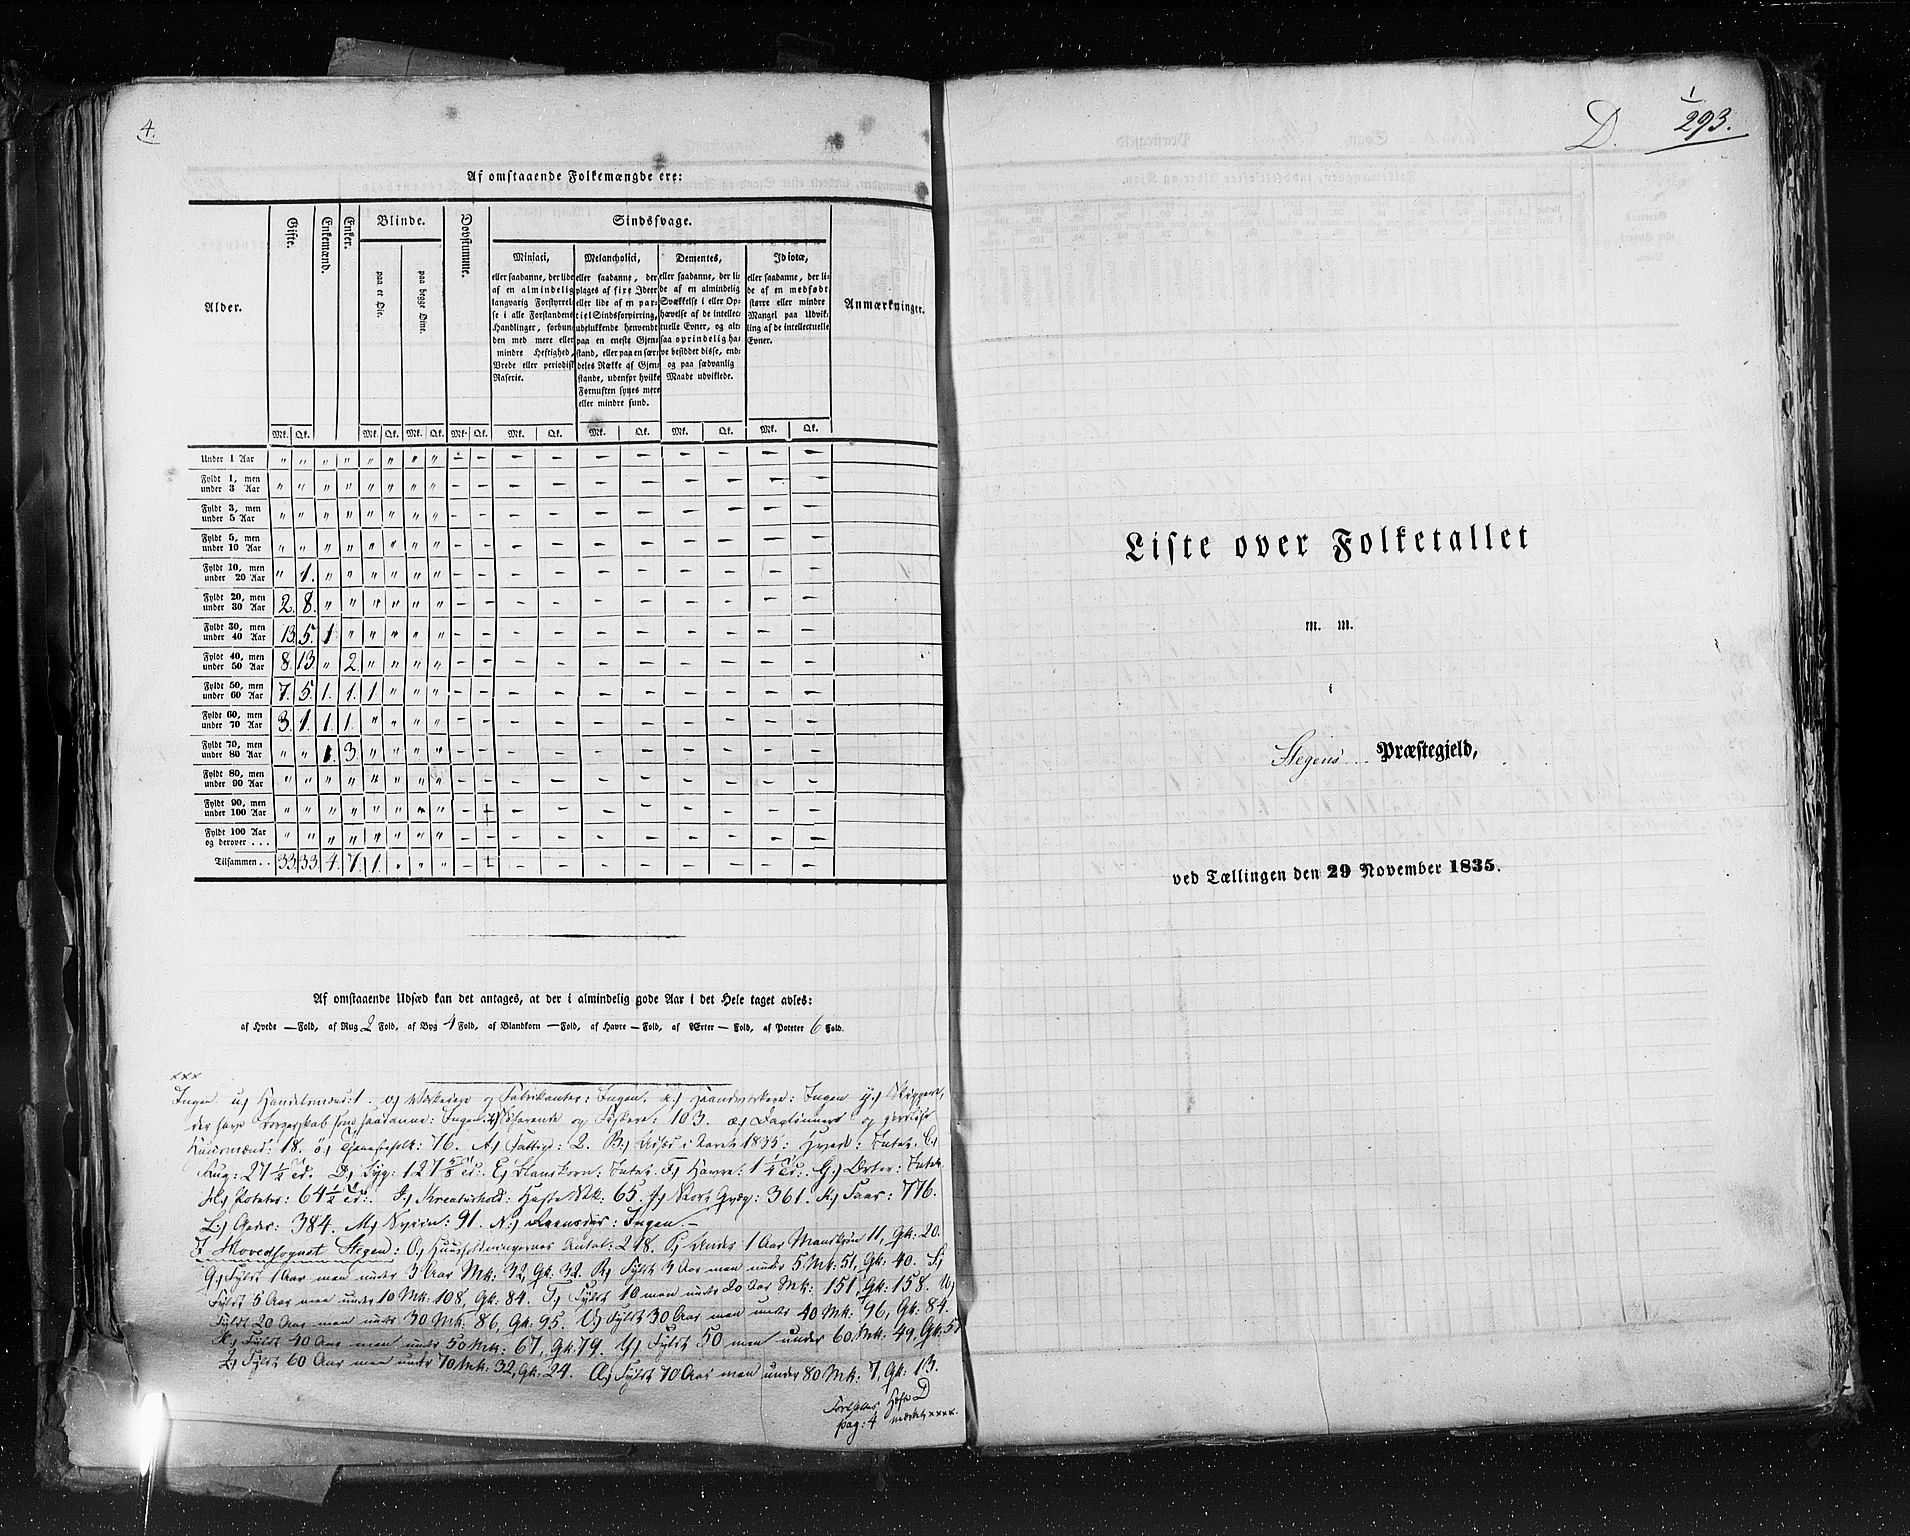 4.
Af omstaaende Folkemængde ere:
Alder. Gifte. Enkemænd. Enker. Blinde. Døvstumme. Sindssvage. Anmærkninger.
paa et Øie. paa begge Øine.
Maniaci, Melancholici, Dementes, Idiotæ,
eller saadanne, der lide af en almindelig langvarig Forstyrrelse i alle Forstandens Handlinger, forbunden med mere eller mindre Heftighed, Vrede eller periodisk Raserie.
eller saadanne, der plages af fixe Ideer eller lide af en partiel Sindsforvirring, udelukkende henvendt paa en eneste Gjenstand, eller paa en særdeles Række af Gjenstande, udenfor hvilke Fornuften synes mere eller mindre sund.
eller saadanne, der lide af en almindelig Svækkelse i eller Ophævelse af de intellectuelle Evner, og altsaa oprindelig have besiddet disse, endog paa sædvanlig Maade udviklede.
eller saadanne, der lide af en medfødt større eller mindre Mangel paa Udvikling af de intellectuelle Evner.
Mk. Qk. Mk. Qk. Mk. Qk. Mk. Qk. Mk. Qk. Mk. Qk. Mk. Qk. Mk. Qk.
Under 1 Aar " " " " " " " " - - - - - - - - - -
Fyldt 1, men under 3 Aar " " " " " " " " - - - - - - - - - -
Fyldt 3, men under 5 Aar " " " " " " " " - - - - - - - - - -
Fyldt 5, men under 10 Aar " " " " " " " " - - - - - - - - - -
Fyldt 10, men under 20 Aar " 1. " " " " " " - - - - - - - - - -
Fyldt 20, men under 30 Aar 2. 8. " " " " " " - - - - - - - - - -
Fyldt 30, men under 40 Aar 13 5. 1 " " " " " - - - - - - - - - -
Fyldt 40, men under 50 Aar 8. 13. " 2 " " " " - - - - - - - - - -
Fyldt 50, men under 60 Aar 7. 5. 1. 1. 1 " " " - - - - - - - - - -
Fyldt 60, men under 70 Aar 3. 1. 1. 1. " " " " - - - - - - - - - -
Fyldt 70, men under 80 Aar " " 1. 3 " " " " - - - - - - - - - -
Fyldt 80, men under 90 Aar " " " " " " " " - - - - - - - - - -
Fyldt 90, men under 100 Aar " " " " " " " " - - - - - - - - - -
Fyldt 100 Aar og derover . . . " " " " " " " " - - - - - - - - - -
Tilsammen . . 33. 33. 4. 7. 1. " " " - - - - - - - - - -
Af omstaaende Udsæd kan det antages, at der i almindelig gode Aar i det Hele taget avles:
af Hvede — Fold, af Rug 2 Fold, af Byg 4 Fold, af Blandkorn — Fold, af Havre — Fold, af Erter — Fold, af Poteter 6 Fold.
xxx
Ingen u) Handelsmænd: 1. v) og Fabrikanter: Ingen. x) Haandværkere: Ingen y) Skippere,
der have Borgerskab som saadanne: Ingen. z) Søfarende og Fiskere: 103. æ) Daglønnere og
Huusmænd: 18. ø) Tjenestefolk: 76. A) Fattige: 2. B) Udsæd i Aaret 1835: Hvede: Intet. C)
Rug: 27 1/2 Td. D) Byg: 127 5/8 Td: E) Blandkorn: Intet. F) Havre: 1 1/4 Td: G) Erter: Intet.
H) Poteter: 64 1/2 Td: I) Kreaturhold: Heste Stk: 65. J) Stort Qvæg: 361. K) Faar: 776.
L) Geder: 384. M) Sviin: 91. N) Reensdyr: Ingen. —
I Hovedsognet Stegen: O) Huusholdningernes Antal: 218. P) Under 1 Aar Mandkjøn 11, Qk: 20.
Q) Fyldt 1 Aar men under 3 Aar Mk: 32, Qk. 32. R) Fyldt 3 Aar men under 5 Mk: 51, Qk: 40. S)
Fyldt 5 Aar men under 10 Mk: 108, Qk: 84. T) Fyldt 10 men under 20 Aar Mk: 151, Qk: 158. U)
Fyldt 20 Aar men under 30 Mk: 86, Qk. 95. V) Fyldt 30 Aar men under 40 Mk: 96, Qk: 84.
X) Fyldt 40 Aar men under 50 Mk: 67, Qk: 79. Y) Fyldt 50 men under 60 Mk: 49, Qk: 51
Z) Fyldt 60 Aar men under 70 Mk: 32, Qk: 24. Æ) Fyldt 70 Aar men under 80 Mk: 7, Qk: 13.
Fortsættes Hefte D
pag: 4 mærket xxxx.
D. 1
293.
Liste over Folketallet
m. m.
i
Stegens Præstegjeld,
ved Tællingen den 29 November 1835.